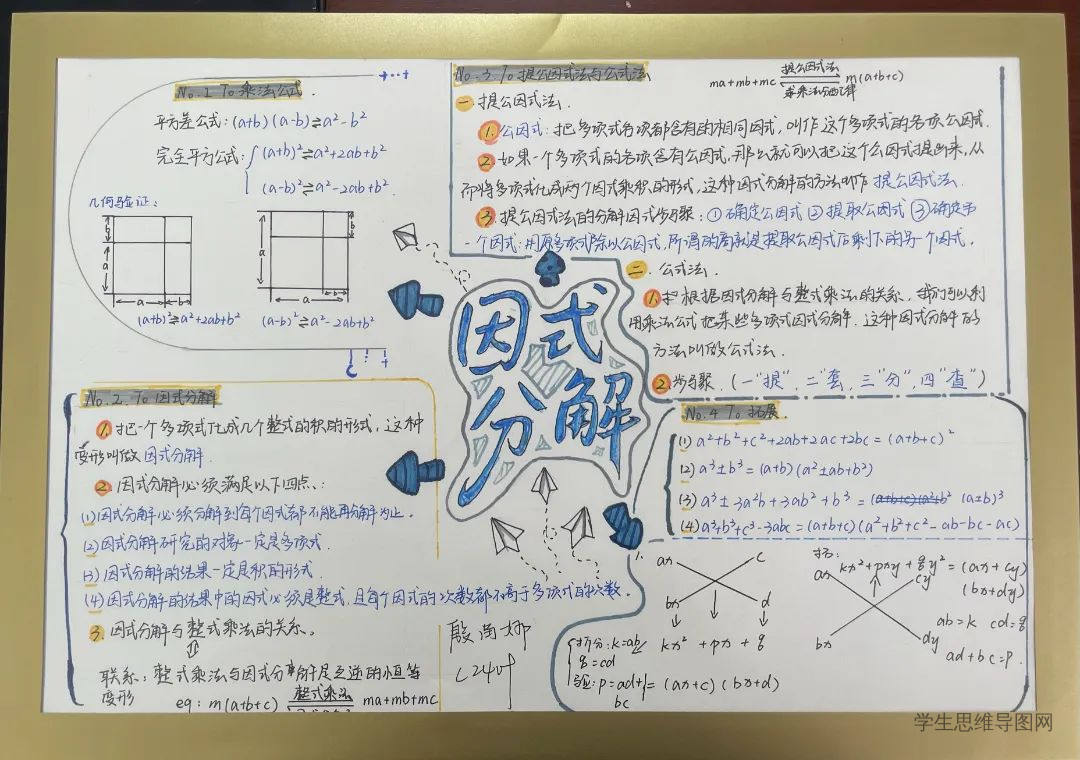 No.1 To 乘法公式.
平方差公式:(a+b)(a-b)⇌a²-b²
完全平方公式:(a+b)²⇌a²+2ab+b²
(a-b)²⇌a²-2ab+b².
几何验证:
b
a
a
b
a
b
a
b
(a+b)²⇌a²+2ab+b²
(a-b)²⇌a²-2ab+b²
No.2. To 因式分解
1.把一个多项式化成几个整式的积的形式,这种
变形叫做因式分解.
2.因式分解必须满足以下四点:
(1)因式分解必须分解到每个因式都不能再分解为止.
(2)因式分解研究的对象一定是多项式.
(3)因式分解的结果一定是积的形式.
(4)因式分解的结果中的因式必须是整式,且每个因式的次数都不高于多项式的次数.
3.因式分解与整式乘法的关系.
联系:整式乘法与因式分解是互逆的恒等
变形
eg: m(a+b+c) 整式乘法 ma+mb+mc
No.3. To 提公因式法与公式法
ma+mb+mc 提公因式法 m(a+b+c)
一.提公因式法.
1.公因式:把多项式各项都含有的相同因式,叫作这个多项式的各项公因式.
2.如果一个多项式的各项含有公因式,那么就可以把这个公因式提出来,从
而将多项式化成两个因式乘积的形式,这种因式分解的方法叫作提公因式法.
3.提公因式法的分解因式步骤:①确定公因式②提取公因式③确定另
一个因式:用原多项式除以公因式,所得的商就是提取公因式后剩下的另一个因式.
二.公式法.
1.把根据因式分解与整式乘法的关系,我们可以利
用乘法公式把某些多项式因式分解.这种因式分解的
方法叫做公式法.
2.步骤.(一"提",二"套",三"分",四"查")
因式
分解
No.4 To 拓展.
(1)a²+b²+c²+2ab+2ac+2bc=(a+b+c)²
(2)a³±b³=(a+b)(a²±ab+b²)
(3)a³±3a²b+3ab²+b³=(a±b)³
(4)a³+b³+c³-3abc=(a+b+c)(a²+b²+c²-ab-bc-ac)
1.
ax
c
bx
d
kx²+px+q
拆分:k=ab
q=cd
验:p=ad+
bc
=(ax+c)(bx+d)
kx²+pxy+qy²=(ax+cy)
(bx+dy)
ax
cy
bx
dy
ab=k cd=q
ad+bc=p.
C240
学生思维导图网